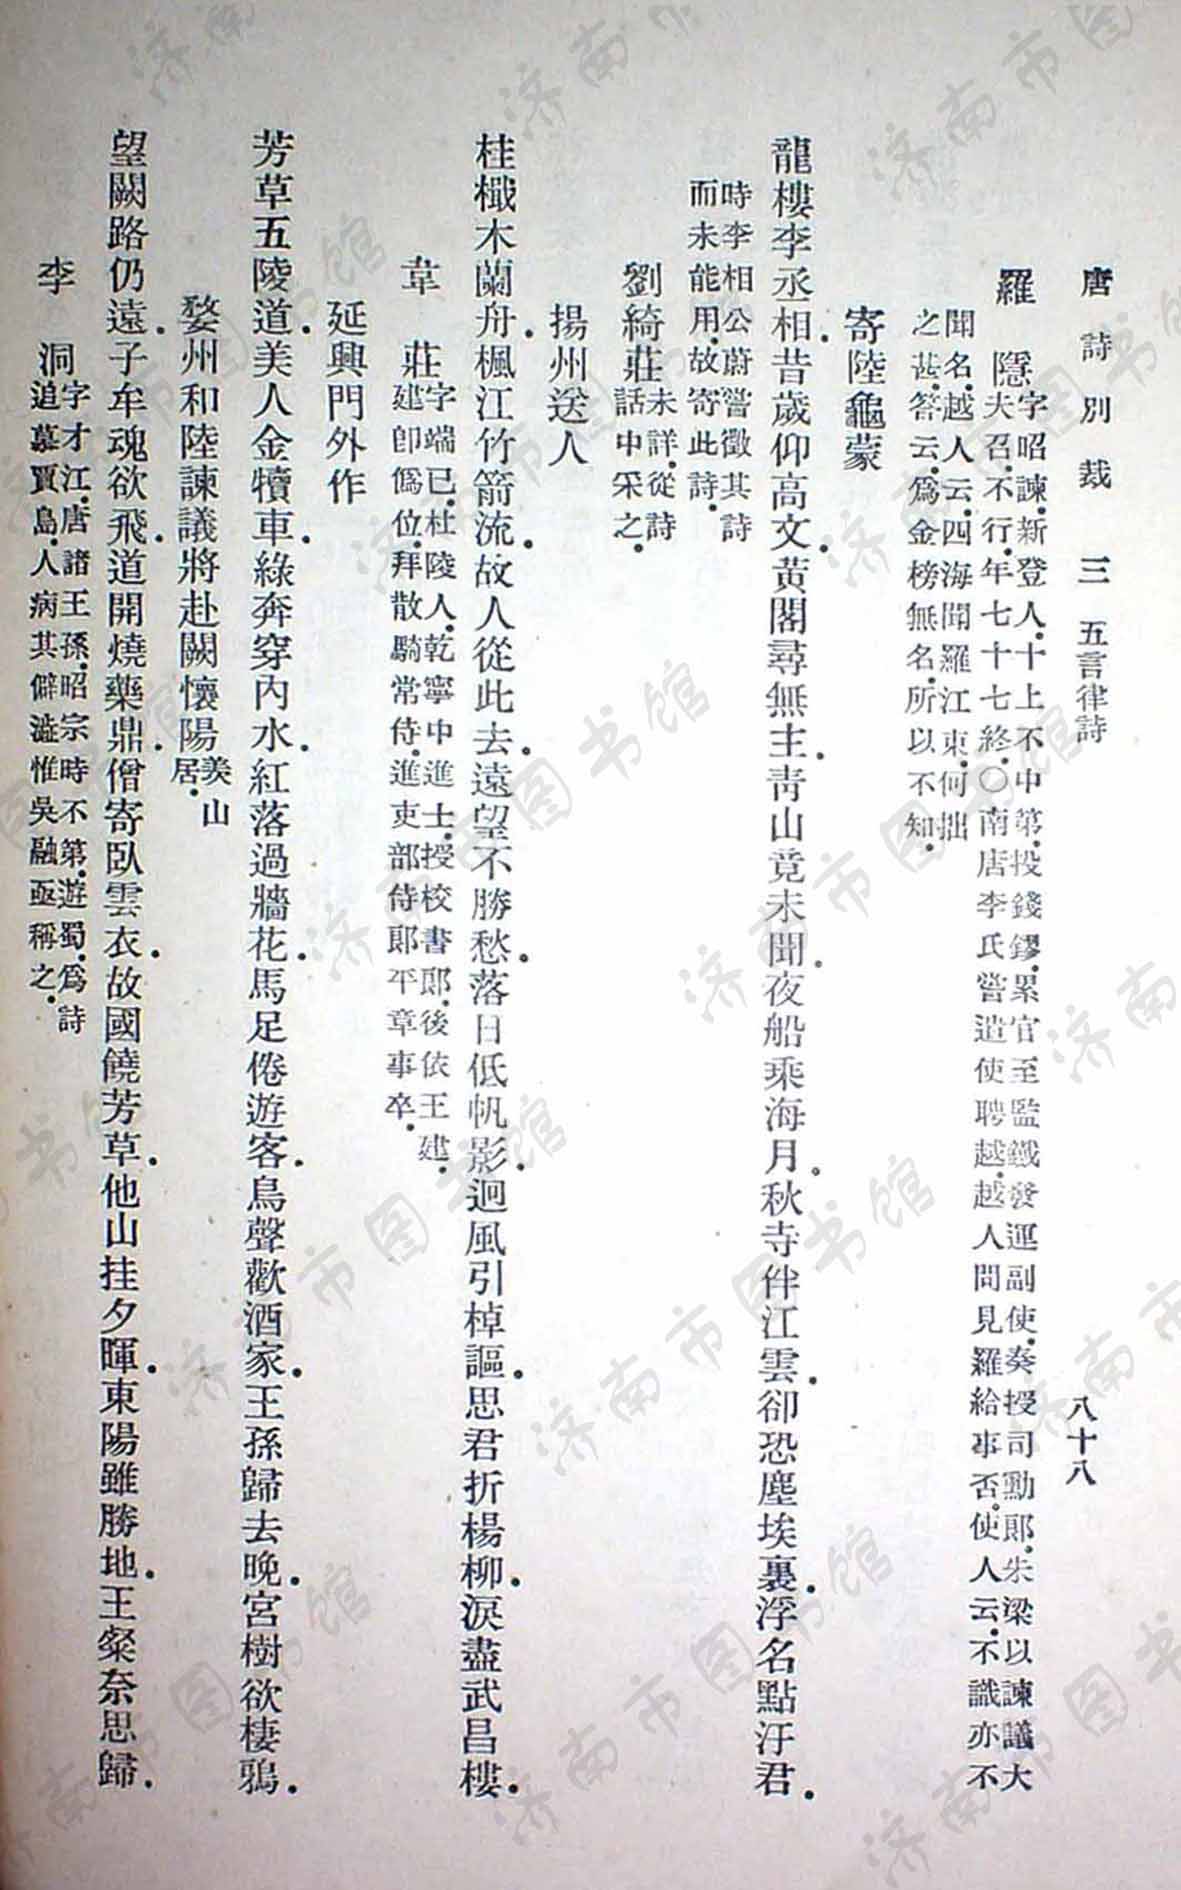 唐詩別裁 三 五言律詩 八十八
羅 隱 字昭諫．新登人．十上不中第．投錢鏐．累官至監鐵發運副使．奏授司勳郎．朱梁以諫議大
夫召．不行．年七十七終．○南唐李氏嘗遣使聘越．越人問見羅給事否．使人云．不識亦不
聞名．越人云．四海聞羅江東．何拙
之甚．答云．爲金榜無名．所以不知．
寄陸龜蒙
龍樓李丞相．昔歲仰高文．黃閣尋無主．靑山竟未聞．夜船乘海月．秋寺伴江雲．卻恐塵埃裏．浮名點汙君．
時李相公蔚嘗徵其詩
而未能用．故寄此詩．
劉綺莊 未詳．從詩
話中采之．
揚州送人
桂檝木蘭舟．楓江竹箭流．故人從此去．遠望不勝愁．落日低帆影．迴風引棹謳．思君折楊柳．淚盡武昌樓．
韋 莊 字端已．杜陵人．乾寧中進士．授校書郎．後依王建．
建卽僞位．拜散騎常侍．進吏部侍郎平章事．卒．
延興門外作
芳草五陵道．美人金犢車．綠奔穿內水．紅落過牆花．馬足倦遊客．鳥聲歡酒家．王孫歸去晚．宮樹欲棲鴉．
婺州和陸諫議將赴闕懷陽羨山
居．
望闕路仍遠．子牟魂欲飛．道開燒藥鼎．僧寄臥雲衣．故國饒芳草．他山挂夕暉．東陽雖勝地．王粲奈思歸．
李 洞 字才江．唐諸王孫．昭宗時不第．遊蜀．爲詩
追慕賈島．人病其僻澁．惟吳融亟稱之．